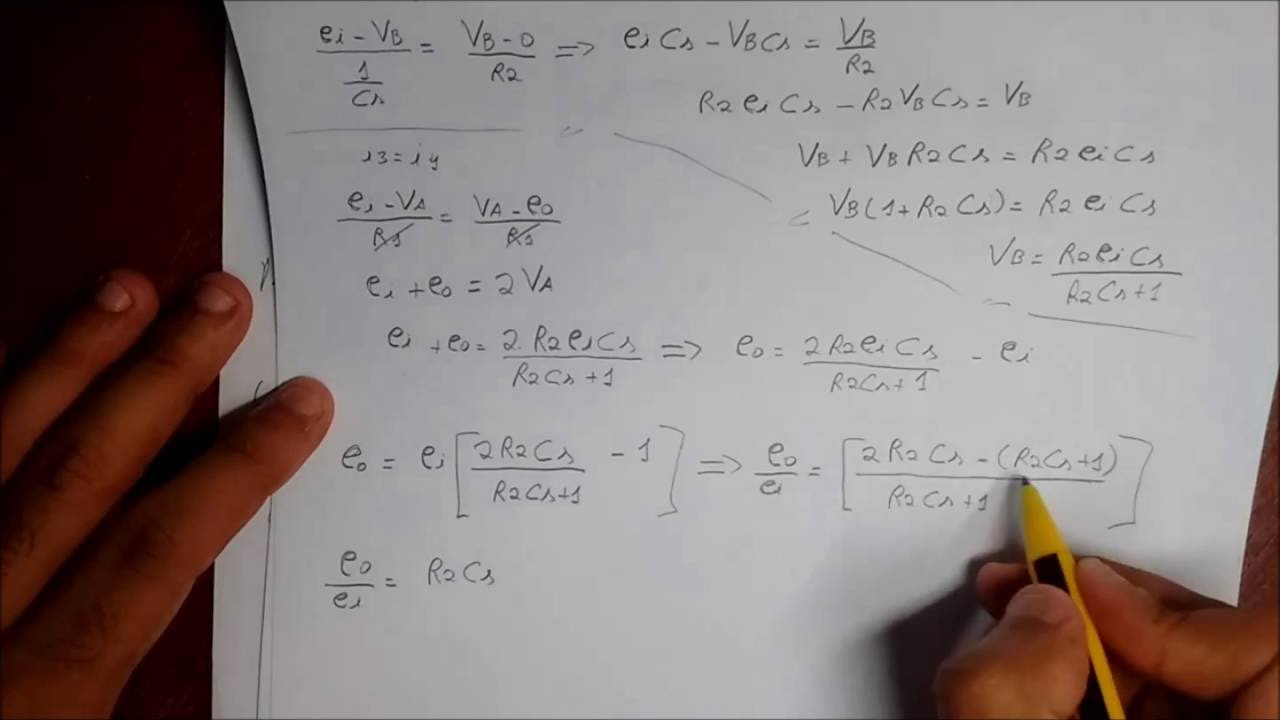 ei - VB / 1/Cs = VB - 0 / R2 => ei Cs - VB Cs = VB / R2
R2 ei Cs - R2 VB Cs = VB
VB + VB R2 Cs = R2 ei Cs
VB (1 + R2 Cs) = R2 ei Cs
VB = R2 ei Cs / R2 Cs + 1
i3 = i4
ei - VA / R1 = VA - e0 / R1
ei + e0 = 2 VA
ei + e0 = 2. R2 ei Cs / R2 Cs + 1 => e0 = 2 R2 ei Cs / R2 Cs + 1 - ei
e0 = ei [ 2 R2 Cs / R2 Cs + 1 - 1 ] => e0 / ei = [ 2 R2 Cs - (R2 Cs + 1) / R2 Cs + 1 ]
e0 / ei = R2 Cs